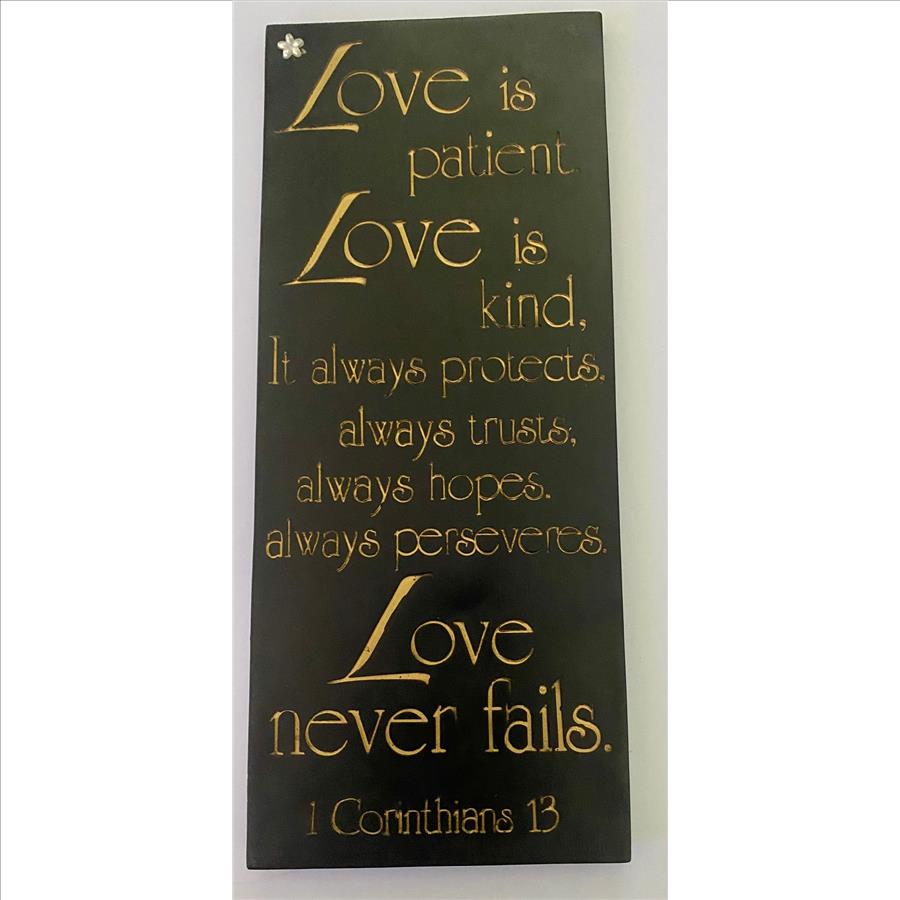 Love is
patient.
Love is
kind,
It always protects.
always trusts,
always hopes.
always perseveres.
Love
never fails.
1 Corinthians 13